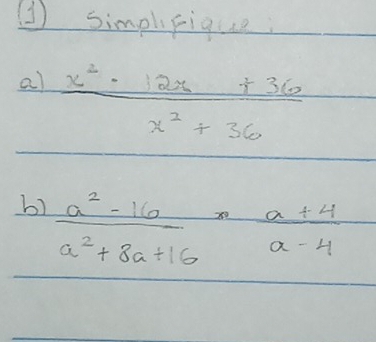 (1) Simplifique:
a) x² - 12x + 36
x² + 36
b) a² - 16 · a + 4
a² + 8a + 16 a - 4